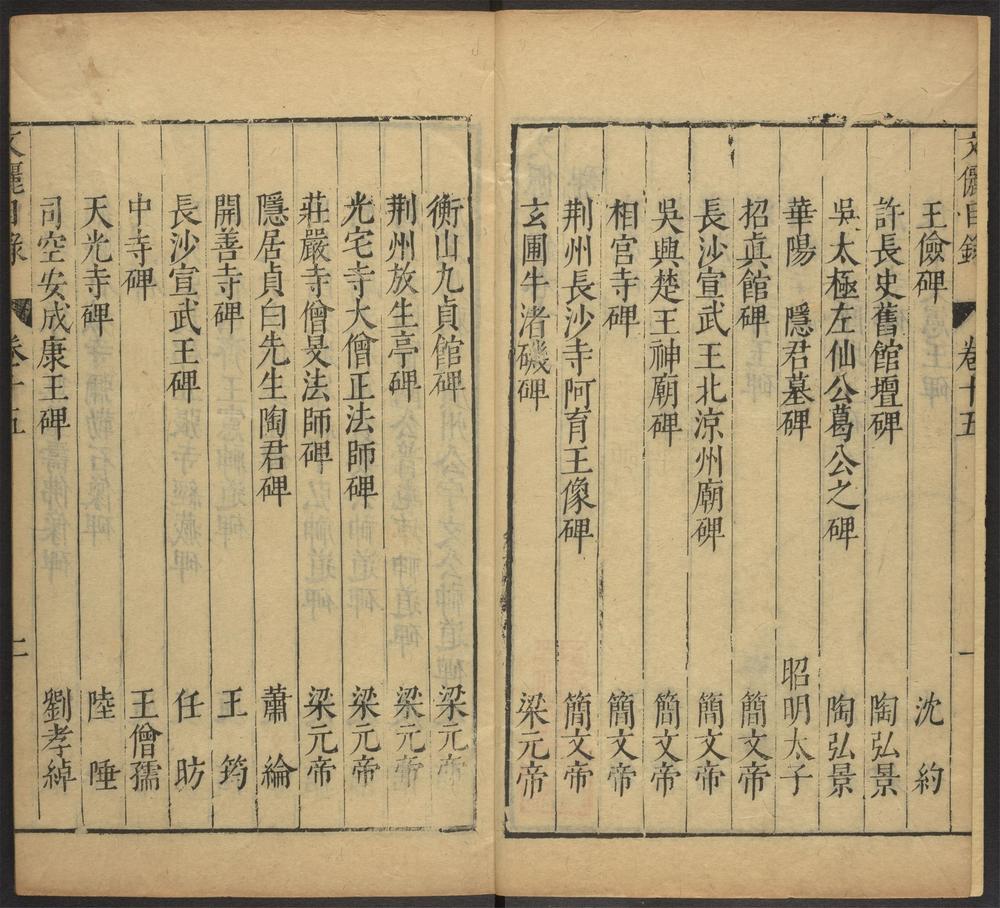 文儷目錄 卷十五 一
王儉碑 沈約
許長史舊館壇碑 陶弘景
吳太極左仙公葛公之碑 陶弘景
華陽 隱君墓碑 昭明太子
招真館碑 簡文帝
長沙宣武王北涼州廟碑 簡文帝
吳興楚王神廟碑 簡文帝
相宮寺碑 簡文帝
荆州長沙寺阿育王像碑 簡文帝
玄圃牛渚磯碑 梁元帝
衡山九貞館碑 梁元帝
荆州放生亭碑 梁元帝
光宅寺大僧正法師碑 梁元帝
莊嚴寺僧旻法師碑 梁元帝
隱居貞白先生陶君碑 蕭綸
開善寺碑 王筠
長沙宣武王碑 任昉
中寺碑 王僧孺
天光寺碑 陸倕
司空安成康王碑 劉孝綽
文儷目錄 卷十五 二